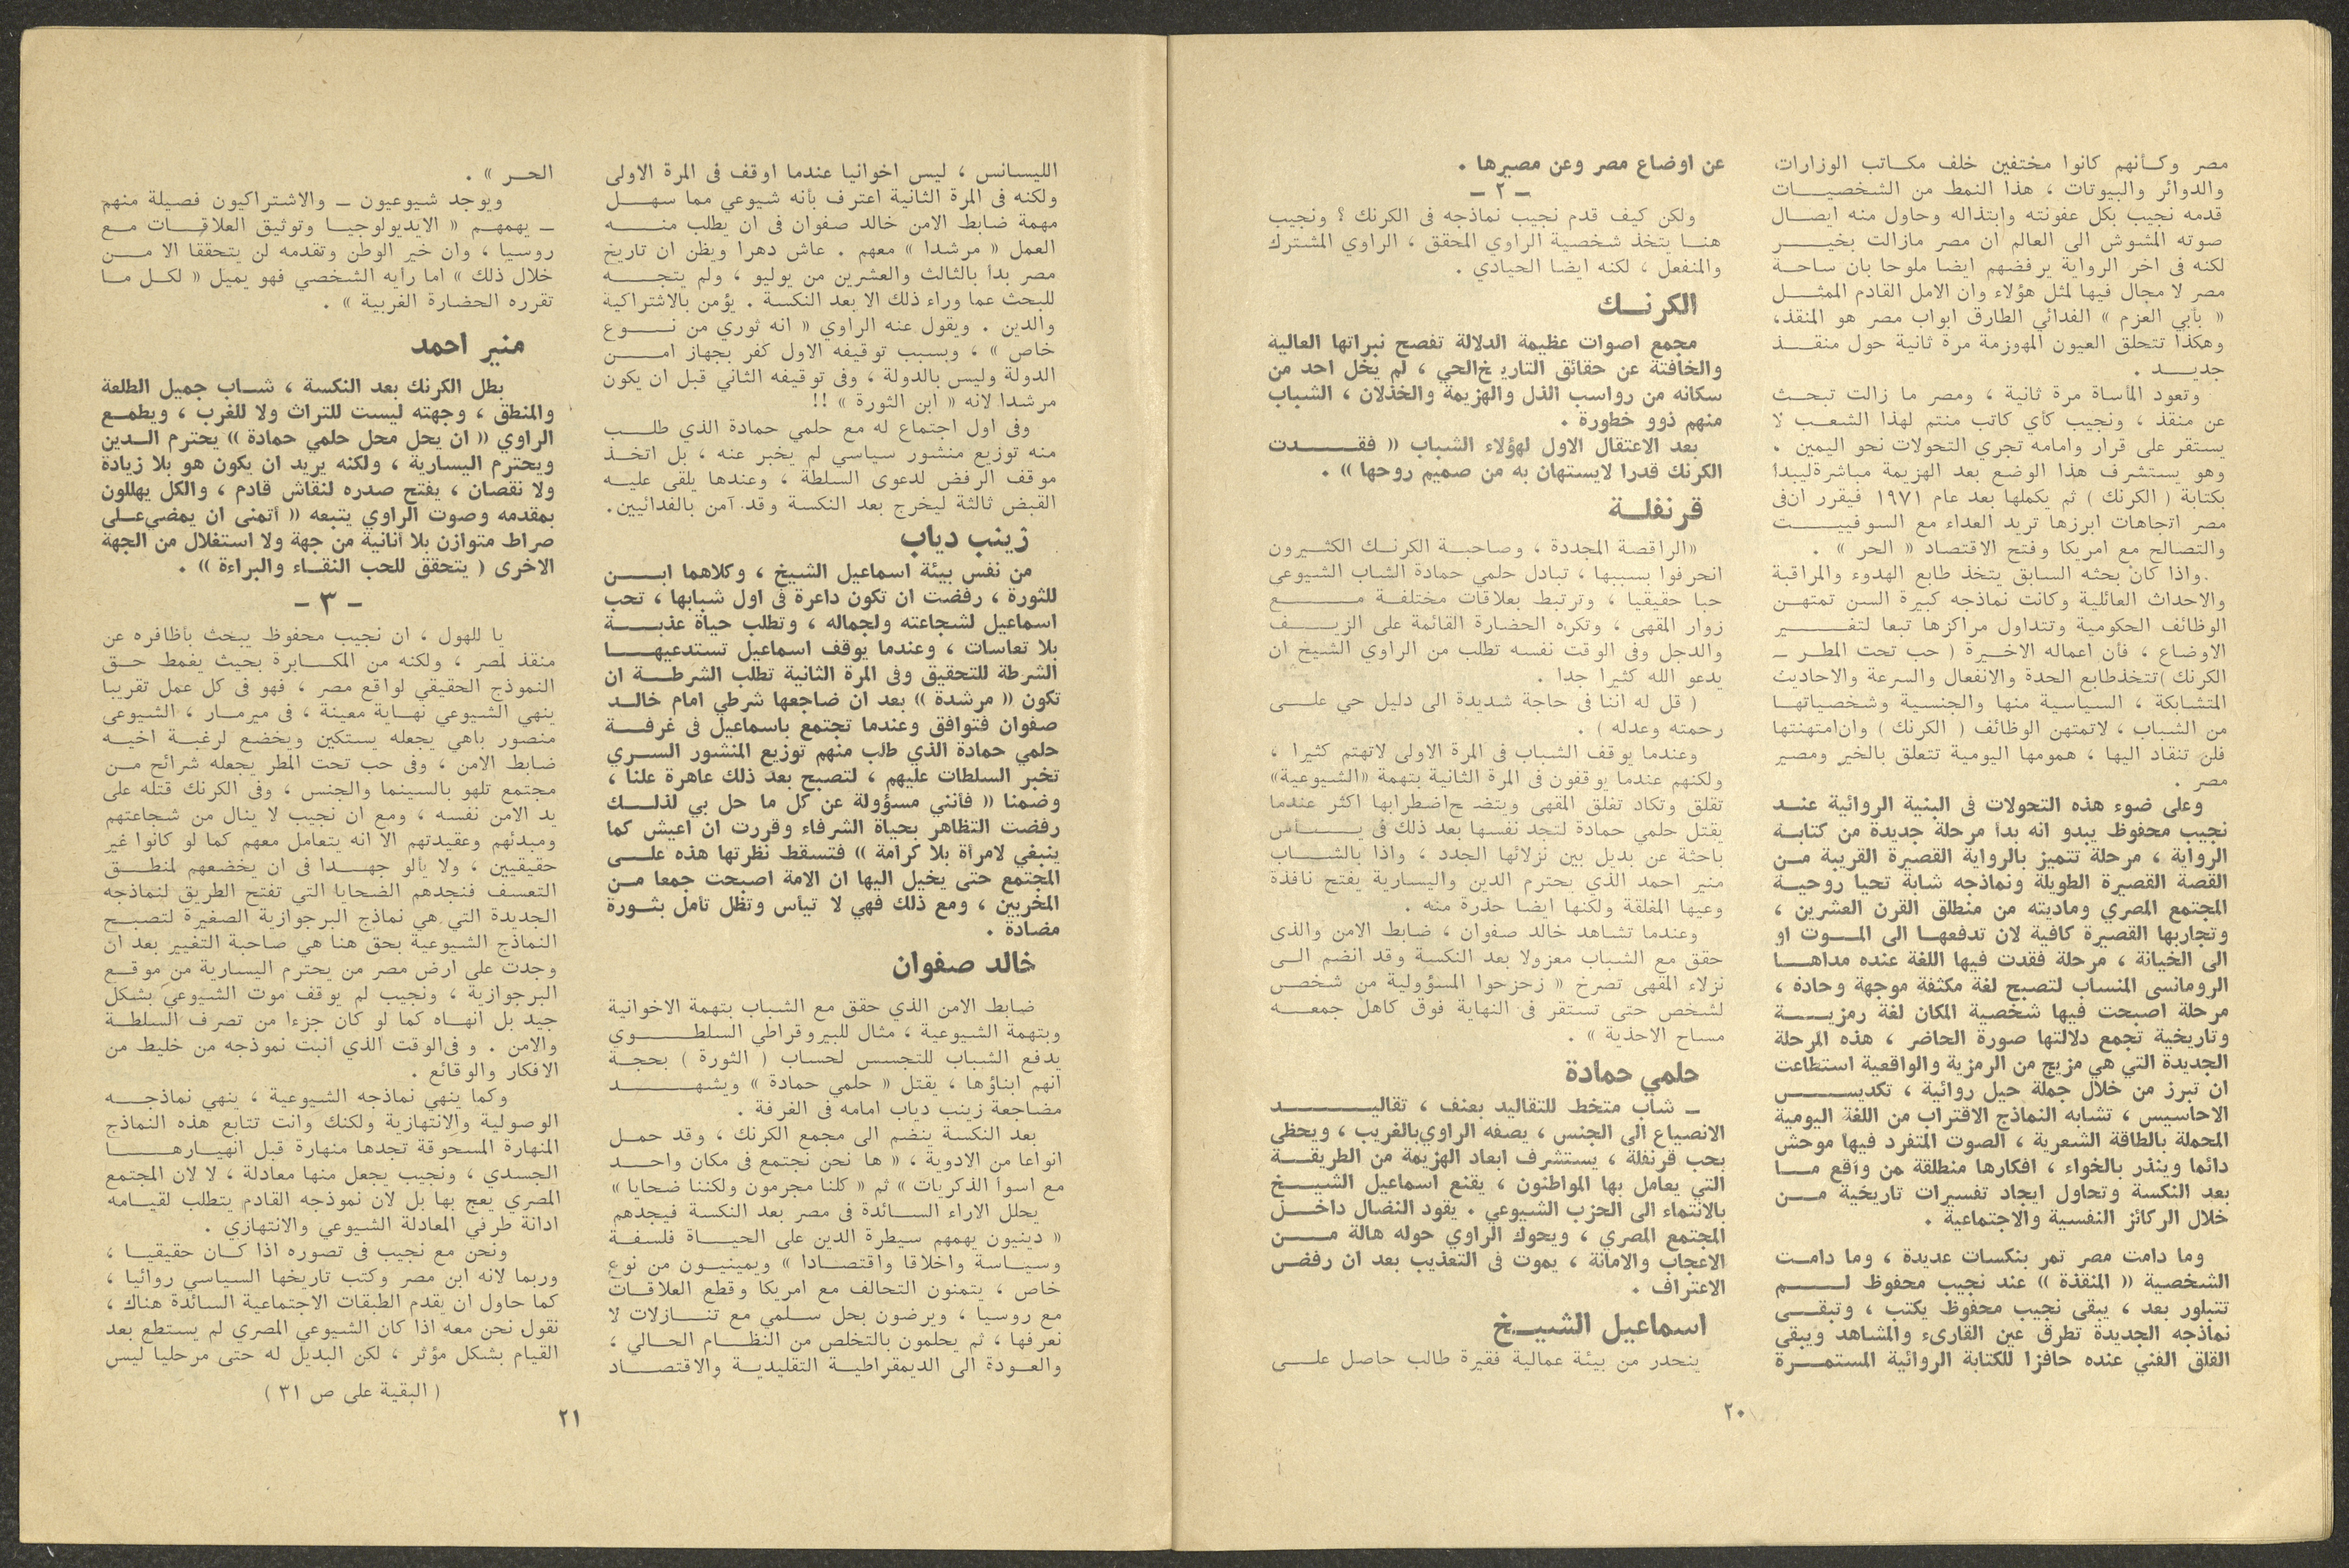 مصر وكأنهم كانوا مختفين خلف مكاتب الوزارات
والدوائر والبيوتات ، هذا النمط من الشخصيات
قدمه نجيب بكل عفونته وابتذاله وحاول منه ايصال
صوته المشوش الى العالم ان مصر مازالت بخير
لكنه فى اخر الرواية يرفضهم ايضا ملوحا بان ساحة
مصر لا مجال فيها لمثل هؤلاء وان الامل القادم الممثل
« بأبي العزم » الفدائي الطارق ابواب مصر هو المنقذ،
وهكذا تتحلق العيون المهزومة مرة ثانية حول منقذ
جديد .
وتعود المأساة مرة ثانية ، ومصر ما زالت تبحث
عن منقذ ، ونجيب كأي كاتب منتم لهذا الشعب لا
يستقر على قرار وامامه تجري التحولات نحو اليمين .
وهو يستشرف هذا الوضع بعد الهزيمة مباشرة ليبدأ
بكتابة ( الكرنك ) ثم يكملها بعد عام ١٩٧١ فيقرر ان فى
مصر اتجاهات ابرزها تريد العداء مع السوفييت
والتصالح مع امريكا وفتح الاقتصاد « الحر » .
واذا كان بحثه السابق يتخذ طابع الهدوء والمراقبة
والاحداث العائلية وكانت نماذجه كبيرة السن تمتهن
الوظائف الحكومية وتتداول مراكزها تبعا لتغير
الاوضاع ، فأن اعماله الاخيرة ( حب تحت المطر ـ
الكرنك ) تتخذ طابع الحدة والانفعال والسرعة والاحاديث
المتشابكة ، السياسية منها والجنسية وشخصياتها
من الشباب ، لاتمتهن الوظائف ( الكرنك ) وان امتهنتها
فلن تنقاد اليها ، همومها اليومية تتعلق بالخير ومصير
مصر .
وعلى ضوء هذه التحولات فى البنية الروائية عند
نجيب محفوظ يبدو انه بدأ مرحلة جديدة من كتابة
الرواية ، مرحلة تتميز بالرواية القصيرة القريبة من
القصة القصيرة الطويلة ونماذجه شابة تحيا روحية
المجتمع المصري وماديته من منطلق القرن العشرين ،
وتجاربها القصيرة كافية لان تدفعها الى الموت او
الى الخيانة ، مرحلة فقدت فيها اللغة عنده مداها
الرومانسى المنساب لتصبح لغة مكثفة موجهة وحادة ،
مرحلة اصبحت فيها شخصية المكان لغة رمزية
وتاريخية تجمع دلالتها صورة الحاضر ، هذه المرحلة
الجديدة التي هي مزيج من الرمزية والواقعية استطاعت
ان تبرز من خلال جملة حيل روائية ، تكديس
الاحاسيس ، تشابه النماذج الاقتراب من اللغة اليومية
المحملة بالطاقة الشعرية ، الصوت المتفرد فيها موحش
دائما وينذر بالخواء ، افكارها منطلقة من واقع ما
بعد النكسة وتحاول ايجاد تفسيرات تاريخية من
خلال الركائز النفسية والاجتماعية .
وما دامت مصر تمر بنكسات عديدة ، وما دامت
الشخصية « المنقذة » عند نجيب محفوظ لم
تتبلور بعد ، يبقى نجيب محفوظ يكتب ، وتبقى
نماذجه الجديدة تطرق عين القارىء والمشاهد ويبقى
القلق الفني عنده حافزا للكتابة الروائية المستمرة
عن اوضاع مصر وعن مصيرها .
ـ ٢ ـ
ولكن كيف قدم نجيب نماذجه فى الكرنك ؟ ونجيب
هنا يتخذ شخصية الراوي المحقق ، الراوي المشترك
والمنفعل ، لكنه ايضا الحيادي .
الكرنك
مجمع اصوات عظيمة الدلالة تفصح نبراتها العالية
والخافتة عن حقائق التاريخ الحي ، لم يخل احد من
سكانه من رواسب الذل والهزيمة والخذلان ، الشباب
منهم ذوو خطورة .
بعد الاعتقال الاول لهؤلاء الشباب « فقدت
الكرنك قدرا لايستهان به من صميم روحها » .
قرنفلة
«الراقصة المجددة ، وصاحبة الكرنك الكثيرون
انحرفوا بسببها ، تبادل حلمي حمادة الشاب الشيوعى
حبا حقيقيا ، وترتبط بعلاقات مختلفة مع
زوار المقهى ، وتكره الحضارة القائمة على الزيف
والدجل وفى الوقت نفسه تطلب من الراوي الشيخ ان
يدعو الله كثيرا جدا .
( قل له اننا فى حاجة شديدة الى دليل حي على
رحمته وعدله ) .
وعندما يوقف الشباب فى المرة الاولى لاتهتم كثيرا ،
ولكنهم عندما يوقفون فى المرة الثانية بتهمة «الشيوعية»
تقلق وتكاد تغلق المقهى ويتضح اضطرابها اكثر عندما
يقتل حلمي حمادة لتجد نفسها بعد ذلك فى يأس
باحثة عن بديل بين نزلائها الجدد ، واذا بالشاب
منير احمد الذي يحترم الدين واليسارية يفتح نافذة
وعيها المغلقة ولكنها ايضا حذرة منه .
وعندما تشاهد خالد صفوان ، ضابط الامن والذى
حقق مع الشباب معزولا بعد النكسة وقد انضم الى
نزلاء المقهى تصرخ « زحزحوا المسؤولية من شخص
لشخص حتى تستقر فى النهاية فوق كاهل جمعه
مساح الاحذية » .
حلمي حمادة
ـ شاب متخط للتقاليد بعنف ، تقاليد
الانصياع الى الجنس ، يصفه الراوي بالغريب ، ويحظى
بحب قرنفلة ، يستشرف ابعاد الهزيمة من الطريقة
التي يعامل بها المواطنون ، يقنع اسماعيل الشيخ
بالانتماء الى الحزب الشيوعي . يقود النضال داخل
المجتمع المصري ، ويحوك الراوي حوله هالة من
الاعجاب والامانة ، يموت فى التعذيب بعد ان رفض
الاعتراف .
اسماعيل الشيخ
ينحدر من بيئة عمالية فقيرة طالب حاصل على
٢٠
الليسانس ، ليس اخوانيا عندما اوقف فى المرة الاولى
ولكنه فى المرة الثانية اعترف بأنه شيوعي مما سهل
مهمة ضابط الامن خالد صفوان فى ان يطلب منه
العمل « مرشدا » معهم . عاش دهرا ويظن ان تاريخ
مصر بدأ بالثالث والعشرين من يوليو ، ولم يتجه
للبحث عما وراء ذلك الا بعد النكسة . يؤمن بالاشتراكية
والدين . ويقول عنه الراوي « انه ثوري من نوع
خاص » ، وبسبب توقيفه الاول كفر بجهاز امن
الدولة وليس بالدولة ، وفى توقيفه الثاني قبل ان يكون
مرشدا لانه « ابن الثورة » !!
وفى اول اجتماع له مع حلمي حمادة الذي طلب
منه توزيع منشور سياسي لم يخبر عنه ، بل اتخذ
موقف الرفض لدعوى السلطة ، وعندها يلقى عليه
القبض ثالثة ليخرج بعد النكسة وقد آمن بالفدائيين.
زينب دياب
من نفس بيئة اسماعيل الشيخ ، وكلاهما ابن
للثورة ، رفضت ان تكون داعرة فى اول شبابها ، تحب
اسماعيل لشجاعته ولجماله ، وتطلب حياة عذبة
بلا تعاسات ، وعندما يوقف اسماعيل تستدعيها
الشرطة للتحقيق وفى المرة الثانية تطلب الشرطة ان
تكون « مرشدة » بعد ان ضاجعها شرطي امام خالد
صفوان فتوافق وعندما تجتمع باسماعيل فى غرفة
حلمي حمادة الذي طلب منهم توزيع المنشور السري
تخبر السلطات عليهم ، لتصبح بعد ذلك عاهرة علنا ،
وضمنا « فأنني مسؤولة عن كل ما حل بي لذلك
رفضت التظاهر بحياة الشرفاء وقررت ان اعيش كما
ينبغي لامرأة بلا كرامة » فتسقط نظرتها هذه على
المجتمع حتى يخيل اليها ان الامة اصبحت جمعا من
المخربين ، ومع ذلك فهي لا تيأس وتظل تأمل بثورة
مضادة .
خالد صفوان
ضابط الامن الذي حقق مع الشباب بتهمة الاخوانية
وبتهمة الشيوعية ، مثال للبيروقراطي السلطوي
يدفع الشباب للتجسس لحساب ( الثورة ) بحجة
انهم ابناؤها ، يقتل « حلمي حمادة » ويشهد
مضاجعة زينب دياب امامه فى الغرفة .
بعد النكسة ينضم الى مجمع الكرنك ، وقد حمل
انواعا من الادوية ، « ها نحن نجتمع فى مكان واحد
مع اسوأ الذكريات » ثم « كلنا مجرمون ولكننا ضحايا »
يحلل الاراء السائدة فى مصر بعد النكسة فيجدهم
« دينيون يهمهم سيطرة الدين على الحياة فلسفة
وسياسة واخلاقا واقتصادا » ويمينيون من نوع
خاص ، يتمنون التحالف مع امريكا وقطع العلاقات
مع روسيا ، ويرضون بحل سلمي مع تنازلات لا
نعرفها ، ثم يحلمون بالتخلص من النظام الحالي ،
والعودة الى الديمقراطية التقليدية والاقتصاد
الحر » .
ويوجد شيوعيون ـ والاشتراكيون فصيلة منهم
ـ يهمهم « الايديولوجيا وتوثيق العلاقات مع
روسيا ، وان خير الوطن وتقدمه لن يتحققا الا من
خلال ذلك » اما رأيه الشخصي فهو يميل « لكل ما
تقرره الحضارة الغربية » .
منير احمد
بطل الكرنك بعد النكسة ، شاب جميل الطلعة
والمنطق ، وجهته ليست للتراث ولا للغرب ، ويطمع
الراوي « ان يحل محل حلمي حمادة » يحترم الدين
ويحترم اليسارية ، ولكنه يريد ان يكون هو بلا زيادة
ولا نقصان ، يفتح صدره لنقاش قادم ، والكل يهللون
بمقدمه وصوت الراوي يتبعه « أتمنى ان يمضي على
صراط متوازن بلا أنانية من جهة ولا استغلال من الجهة
الاخرى ( يتحقق للحب النقاء والبراءة » .
ـ ٣ ـ
يا للهول ، ان نجيب محفوظ يبحث بأظافره عن
منقذ لمصر ، ولكنه من المكابرة بحيث يغمط حق
النموذج الحقيقي لواقع مصر ، فهو فى كل عمل تقريبا
ينهي الشيوعي نهاية معينة ، فى ميرمار ، الشيوعى
منصور باهي يجعله يستكين ويخضع لرغبة اخيه
ضابط الامن ، وفى حب تحت المطر يجعله شرائح من
مجتمع تلهو بالسينما والجنس ، وفى الكرنك قتله على
يد الامن نفسه ، ومع ان نجيب لا ينال من شجاعتهم
ومبدئهم وعقيدتهم الا انه يتعامل معهم كما لو كانوا غير
حقيقيين ، ولا يألو جهدا فى ان يخضعهم لمنطق
التعسف فنجدهم الضحايا التي تفتح الطريق لنماذجه
الجديدة التي هي نماذج البرجوازية الصغيرة لتصبح
النماذج الشيوعية بحق هنا هي صاحبة التغيير بعد ان
وجدت على ارض مصر من يحترم اليسارية من موقع
البرجوازية ، ونجيب لم يوقف موت الشيوعي بشكل
جيد بل انهاه كما لو كان جزءا من تصرف السلطة
والامن . وفى الوقت الذي انبت نموذجه من خليط من
الافكار والوقائع .
وكما ينهي نماذجه الشيوعية ، ينهي نماذجه
الوصولية والانتهازية ولكنك وانت تتابع هذه النماذج
المنهارة المسحوقة تجدها منهارة قبل انهيارها
الجسدي ، ونجيب يجعل منها معادلة ، لا لان المجتمع
المصري يعج بها بل لان نموذجه القادم يتطلب لقيامه
ادانة طرفي المعادلة الشيوعي والانتهازي .
ونحن مع نجيب فى تصوره اذا كان حقيقيا ،
وربما لانه ابن مصر وكتب تاريخها السياسي روائيا ،
كما حاول ان يقدم الطبقات الاجتماعية السائدة هناك ،
نقول نحن معه اذا كان الشيوعي المصري لم يستطع بعد
القيام بشكل مؤثر ، لكن البديل له حتى مرحليا ليس
( البقية على ص ٣١ )
٢١